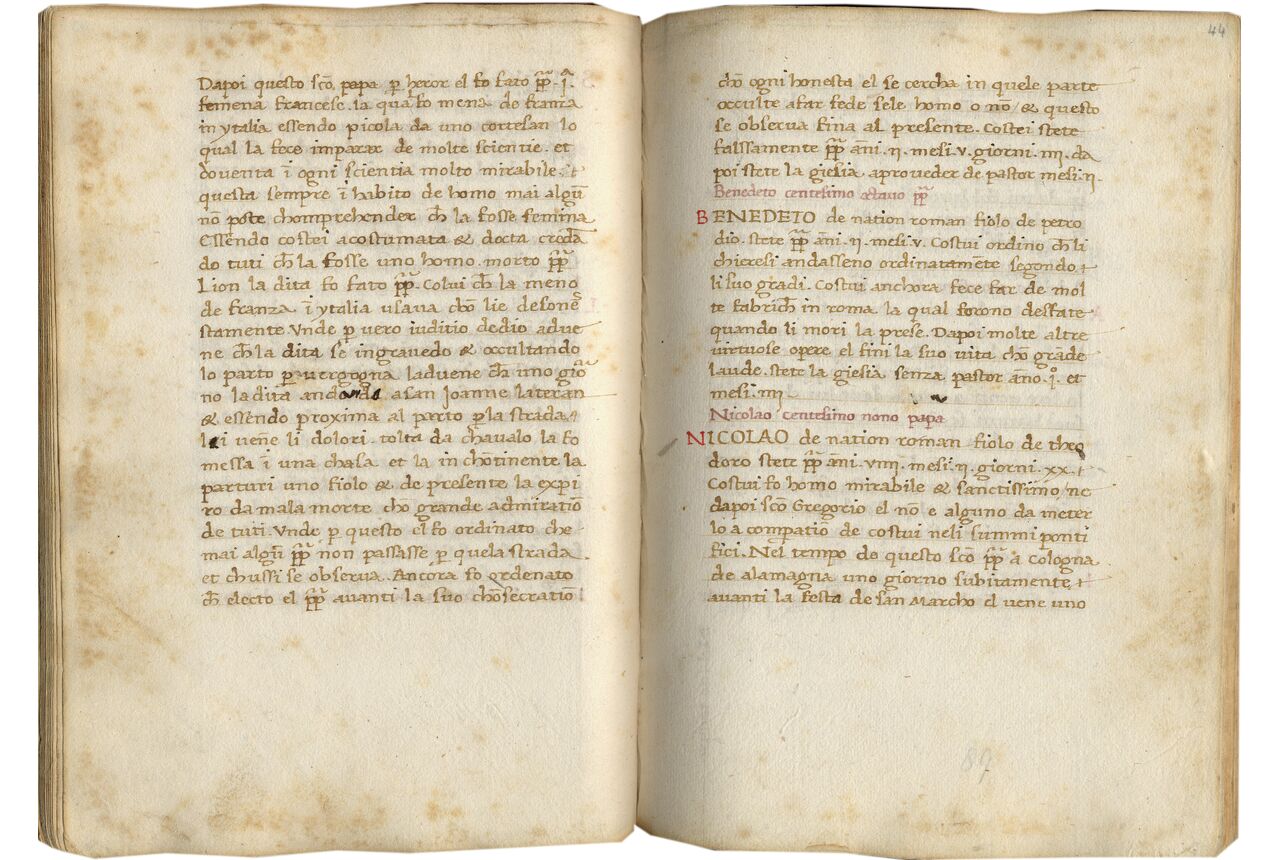 Dapoi questo sc̃o papa p̲ heror el fo fato pp̃ .i.ᵃ
femena francese. la qua fo mena de franza
in ytalia essendo picola da uno cortesan lo
qual la fece imparar de molte scientie. et
doventa ĩ ogni scientia molto mirabile. et
questa sempre ĩ habito de homo mai algũ
nõ pote chomprehender ch̃ la fosse femina
Essendo costei acostumata & docta credã
do tuti ch̃ la fosse uno homo. morto pp̃
Lion la dita fo fato pp̃. Colui ch̃ la meno
de franza ĩ ytalia usava chõ lie desone
stamente. Unde p̲ vero iuditio de dio adue
ne ch̃ la dita se ingravedo & occultando
lo parto p̲ vergogna laduene ch̃ uno gio
no la dita andando a san Ioanne lateran
& essendo proxima al parto p̲ la strada
lei vene li dolori. tolta da chavalo la fo
messa ĩ una chasa et la in chõtinente la
parturi uno fiolo & de presente la expi
ro da mala morte chõ grande admiratiõ
de tuti. Unde p̲ questo el fo ordinato che
mai algũ pp̃ non passasse p̲ quela strada
et chussi se observa. Ancora fo ordenato
ch̃ electo el pp̃ avanti la suo chõsecratiõ
44
chõ ogni honesta el se cercha in quele parte
occulte afar fede sele homo o nõ & questo
se observa fina al presente. Costei stete
falssamente pp̃ ãni .ii. mesi .v. giorni .iiii. da
poi stete la giesia aproveder de pastor mesi .ii.
Benedeto centesimo octavo pp̃
BENEDETO de nation roman fiolo de petro
dio. stete pp̃ ãni .ii. mesi .v. Costui ordino ch̃ li
chieresi andasseno ordinatamẽte segondo
li suo gradi. Costui anchora fece far de mol
te fabrich̃ in roma la qual forono desfate
quando li mori la prese. Dapoi molte altre
virtuose opere el fini la suo vita chõ grãde
laude. stete la giesia senza pastor ãno .i.º et
mesi .iiii.
Nicolao centesimo nono papa
NICOLAO de nation roman fiolo de theo
doro stete pp̃ ãni .viiii. mesi .ii. giorni .xx.
Costui fo homo mirabile & sanctissimo, ne
dapoi sc̃o Gregorio el nõ e alguno da meter
lo a compatiõ de costui neli summi ponti
fici. Nel tempo de questo sc̃o pp̃ a cologna
de alamagna uno giorno subitamente
avanti la festa de san Marcho el vene uno
89